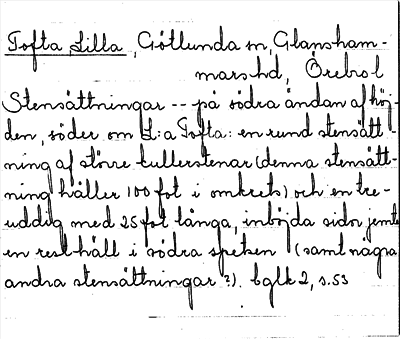 Tofta, Lilla, Götlunda sn, Glansham-
mars hd, Örebro l
Stensättningar -- på södra ändan af höj-
den, söder om L:a Tofta: en rund stensätt-
ning af större kullerstenar (denna stensätt-
ning håller 100 fot i omkrets) och en tre-
uddig med 25 fot långa, inböjda sidor jemte
en rest häll i södra spetsen (samt några
andra stensättningar?). bglk 2, s. 53